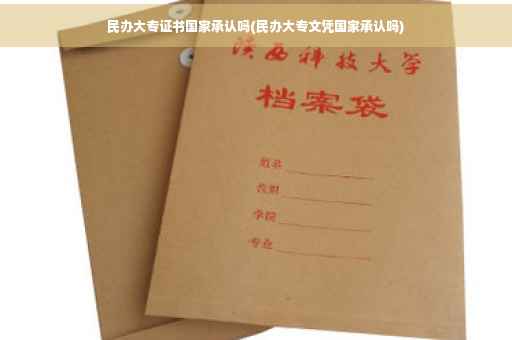 民办大专证书国家承认吗(民办大专文凭国家承认吗)
陕西科技大学
档案袋
学院
专业